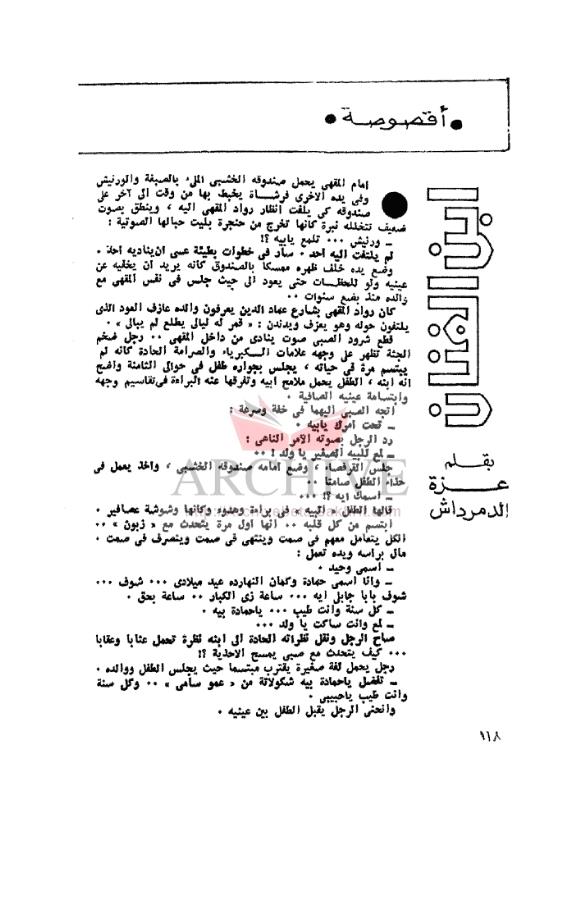 • أقصوصة •
بقلم
عزة
الدمرداش
امام المقهى يحمل صندوقه الخشبى الملىء بالصبغة والورنيش
وفى يده الاخرى فرشاة يخبط بها من وقت الى آخر على
صندوقه كى يلفت انظار رواد المقهى اليه ، وينطق بصوت
ضعيف تتخلله نبرة كانها تخرج من حنجرة بليت حبالها الصوتية :
ـ ورنيش ... تلمع يابيه ؟!
لم يلتفت اليه احد . سار فى خطوات بطيئة عسى ان يناديه احد .
وضع يده خلف ظهره ممسكا بالصندوق كانه يريد ان يخفيه عن
عينيه ولو للحظات حتى يعود الى حيث جلس فى نفس المقهى مع
والده منذ بضع سنوات ..
كان رواد المقهى بشارع عماد الدين يعرفون والده عازف العود الذى
يلتفون حوله وهو يعزف ويدندن : « قمر له ليالى يطلع لم يبالى » .
قطع شرود الصبى صوت ينادى من داخل المقهى .. رجل ضخم
الجثة تظهر على وجهه علامات الكبرياء والصرامة الحادة كانه لم
يبتسم مرة فى حياته ، يجلس بجواره طفل فى حوالى الثامنة واضح
انه ابنه ، الطفل يحمل ملامح ابيه وتفرقها عنه البراءة فى تقاسيم وجهه
وابتسامة عينيه الصافية .
اتجه الصبى اليهما فى خفة وسرعة :
ـ تحت امرك يابيه .
رد الرجل بصوته الآمر الناهى :
ـ لمع للبيه الصغير يا ولد ! ..
جلس القرفصاء ، وضع امامه صندوقه الخشبى ، واخذ يعمل فى
حذاء الطفل صامتا ..
ـ اسمك ايه ؟! ...
قالها الطفل « البيه » فى براءة وهدوء وكانها وشوشة عصافير .
ابتسم من كل قلبه .. انها اول مرة يتحدث مع « زبون » ..
الكل يتعامل معهم فى صمت وينتهى فى صمت وينصرف فى صمت .
مال براسه ويده تعمل :
ـ اسمى وحيد .
ـ وانا اسمى حمادة وكمان النهارده عيد ميلادى ... شوف ...
شوف بابا جابلى ايه ... ساعة زى الكبار .. ساعة بحق .
ـ كل سنة وانت طيب ... ياحمادة بيه .
ـ لمع وانت ساكت يا ولد ...
صاح الرجل ونقل نظراته الحادة الى ابنه نظرة تحمل عتابا وعقابا
... كيف يتحدث مع صبى يمسح الاحذية ؟!
رجل يحمل لفة صغيرة يقترب مبتسما حيث يجلس الطفل ووالده .
ـ تفضل ياحمادة بيه شكولاتة من « عمو سامى » .. وكل سنة
وانت طيب ياحبيبى .
وانحنى الرجل يقبل الطفل بين عينيه .
١١٨
ARCHIVE